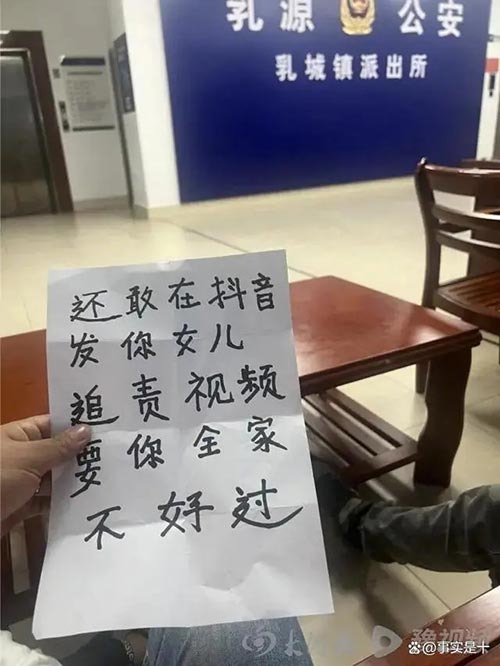 乳源 公安
乳城镇派出所
还敢在抖音
发你女儿
追责视频
要你全家
不好过
@事实是十